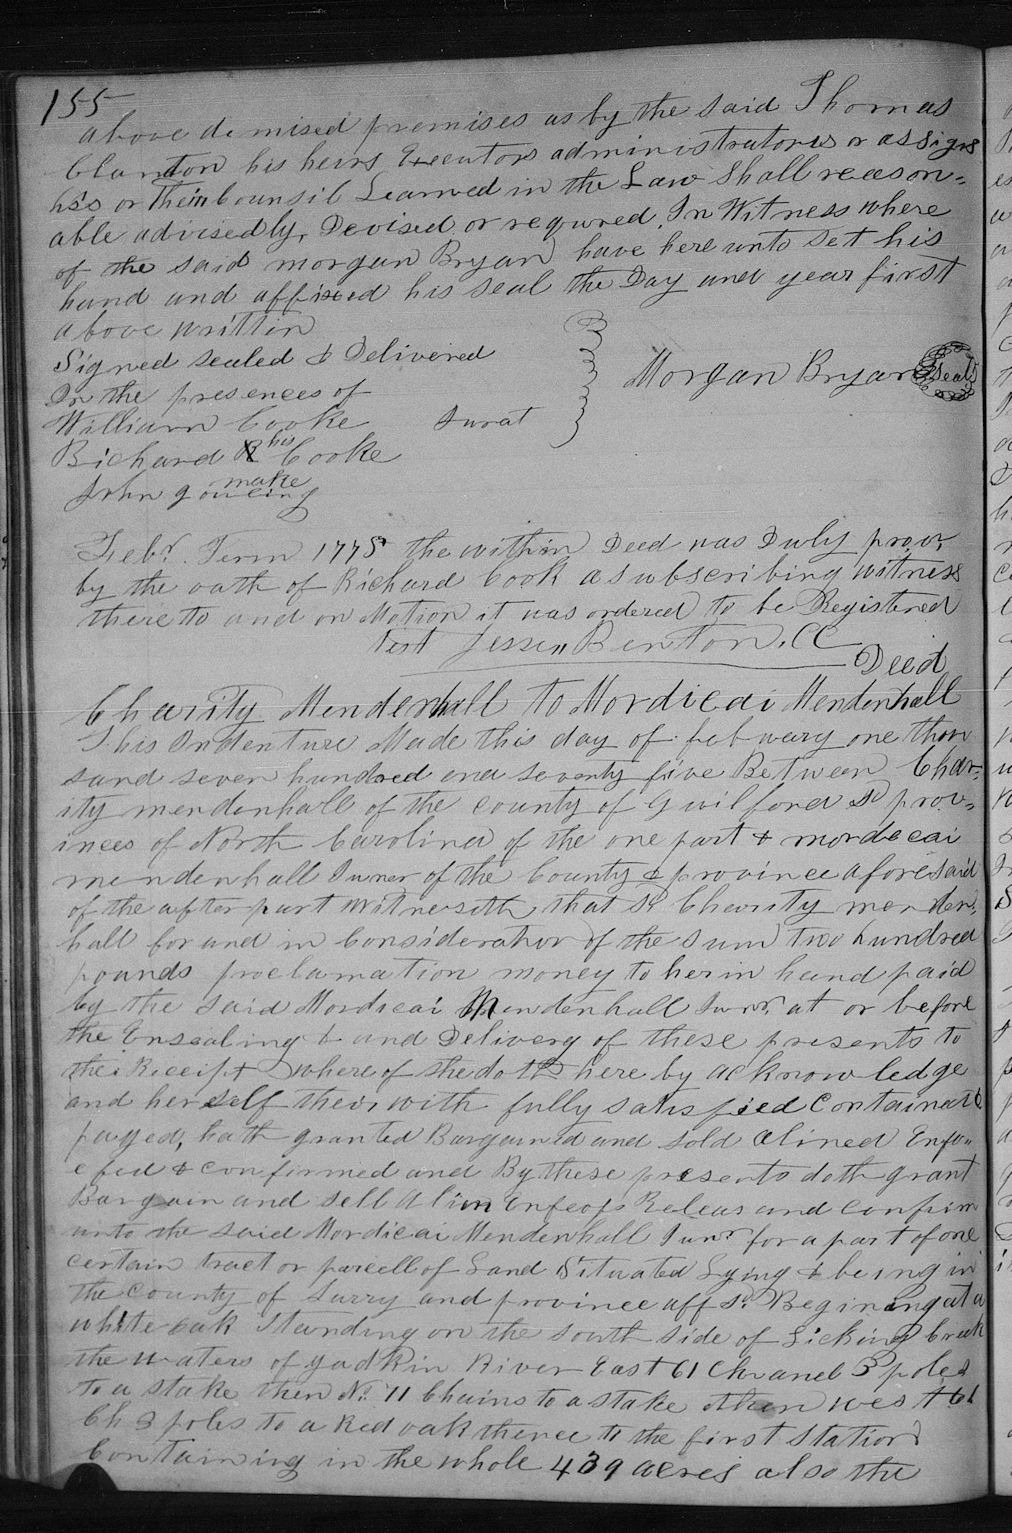 155
above demised premises as by the said Thomas
Clanton his heirs Executors administrators or assigns
his or Their Counsil Learned in the Law Shall reason=
able advisedly, Devised or requred. In Witness where
of the said morgan Bryan have here unto set his
hand and affixed his seal the Day and year first
above writtin
Signed sealed & Delivered
In the presences of
Morgan Bryan Seal
William Cooke Jurat
Richard R his Cooke
make
John
Febr. Term 1775 the within Deed was Duly prov.
by the oath of Richard Cook a subscribing witness
there to and on Motion it was ordered to be Registered
Test Jesse Benton. CC
Deed
Charity Mendenhall To Mordicai Mendenhall
This Indenture Made this day of february one thou
sand seven hundred and seventy five Between Char=
ity mendenhall of the county of Guilford & prov=
inces of North Carolina of the one part & mordecai
mendenhall Juner of the County & province aforesaid
of the after part Witneseth, that Sd Chearity menden=
hall for and in Consideration of the sum two hundred
pounds proclamation money to her in hand paid
by the said Mordicai Mendenhall Junr. at or before
the Ensealing & and Delivery of these presents to
the Receipt whereof she doth here by acknowledge
and herself their with fully satisfied Contained &
payed, hath granted Bargained and sold alined Enfo=
efed & conformed and By these presents doth grant
Bargain and sell alien Enfeofs Releas and confirm
unto the said Mordicai Mendenhall Junr for a part of one
certain tract or parcell of Land Situated Lying & being in
the County of Surry and province aff sd. Begining at a
white oak Standing on the south side of Licking Creek
the waters of yadkin River East 61 Ch and 3 poles
to a stake then No. 71 Chains to a stake then west 61
Ch 3 poles to a Red oak thence to the first station
Containing in the whole 439 acres also the